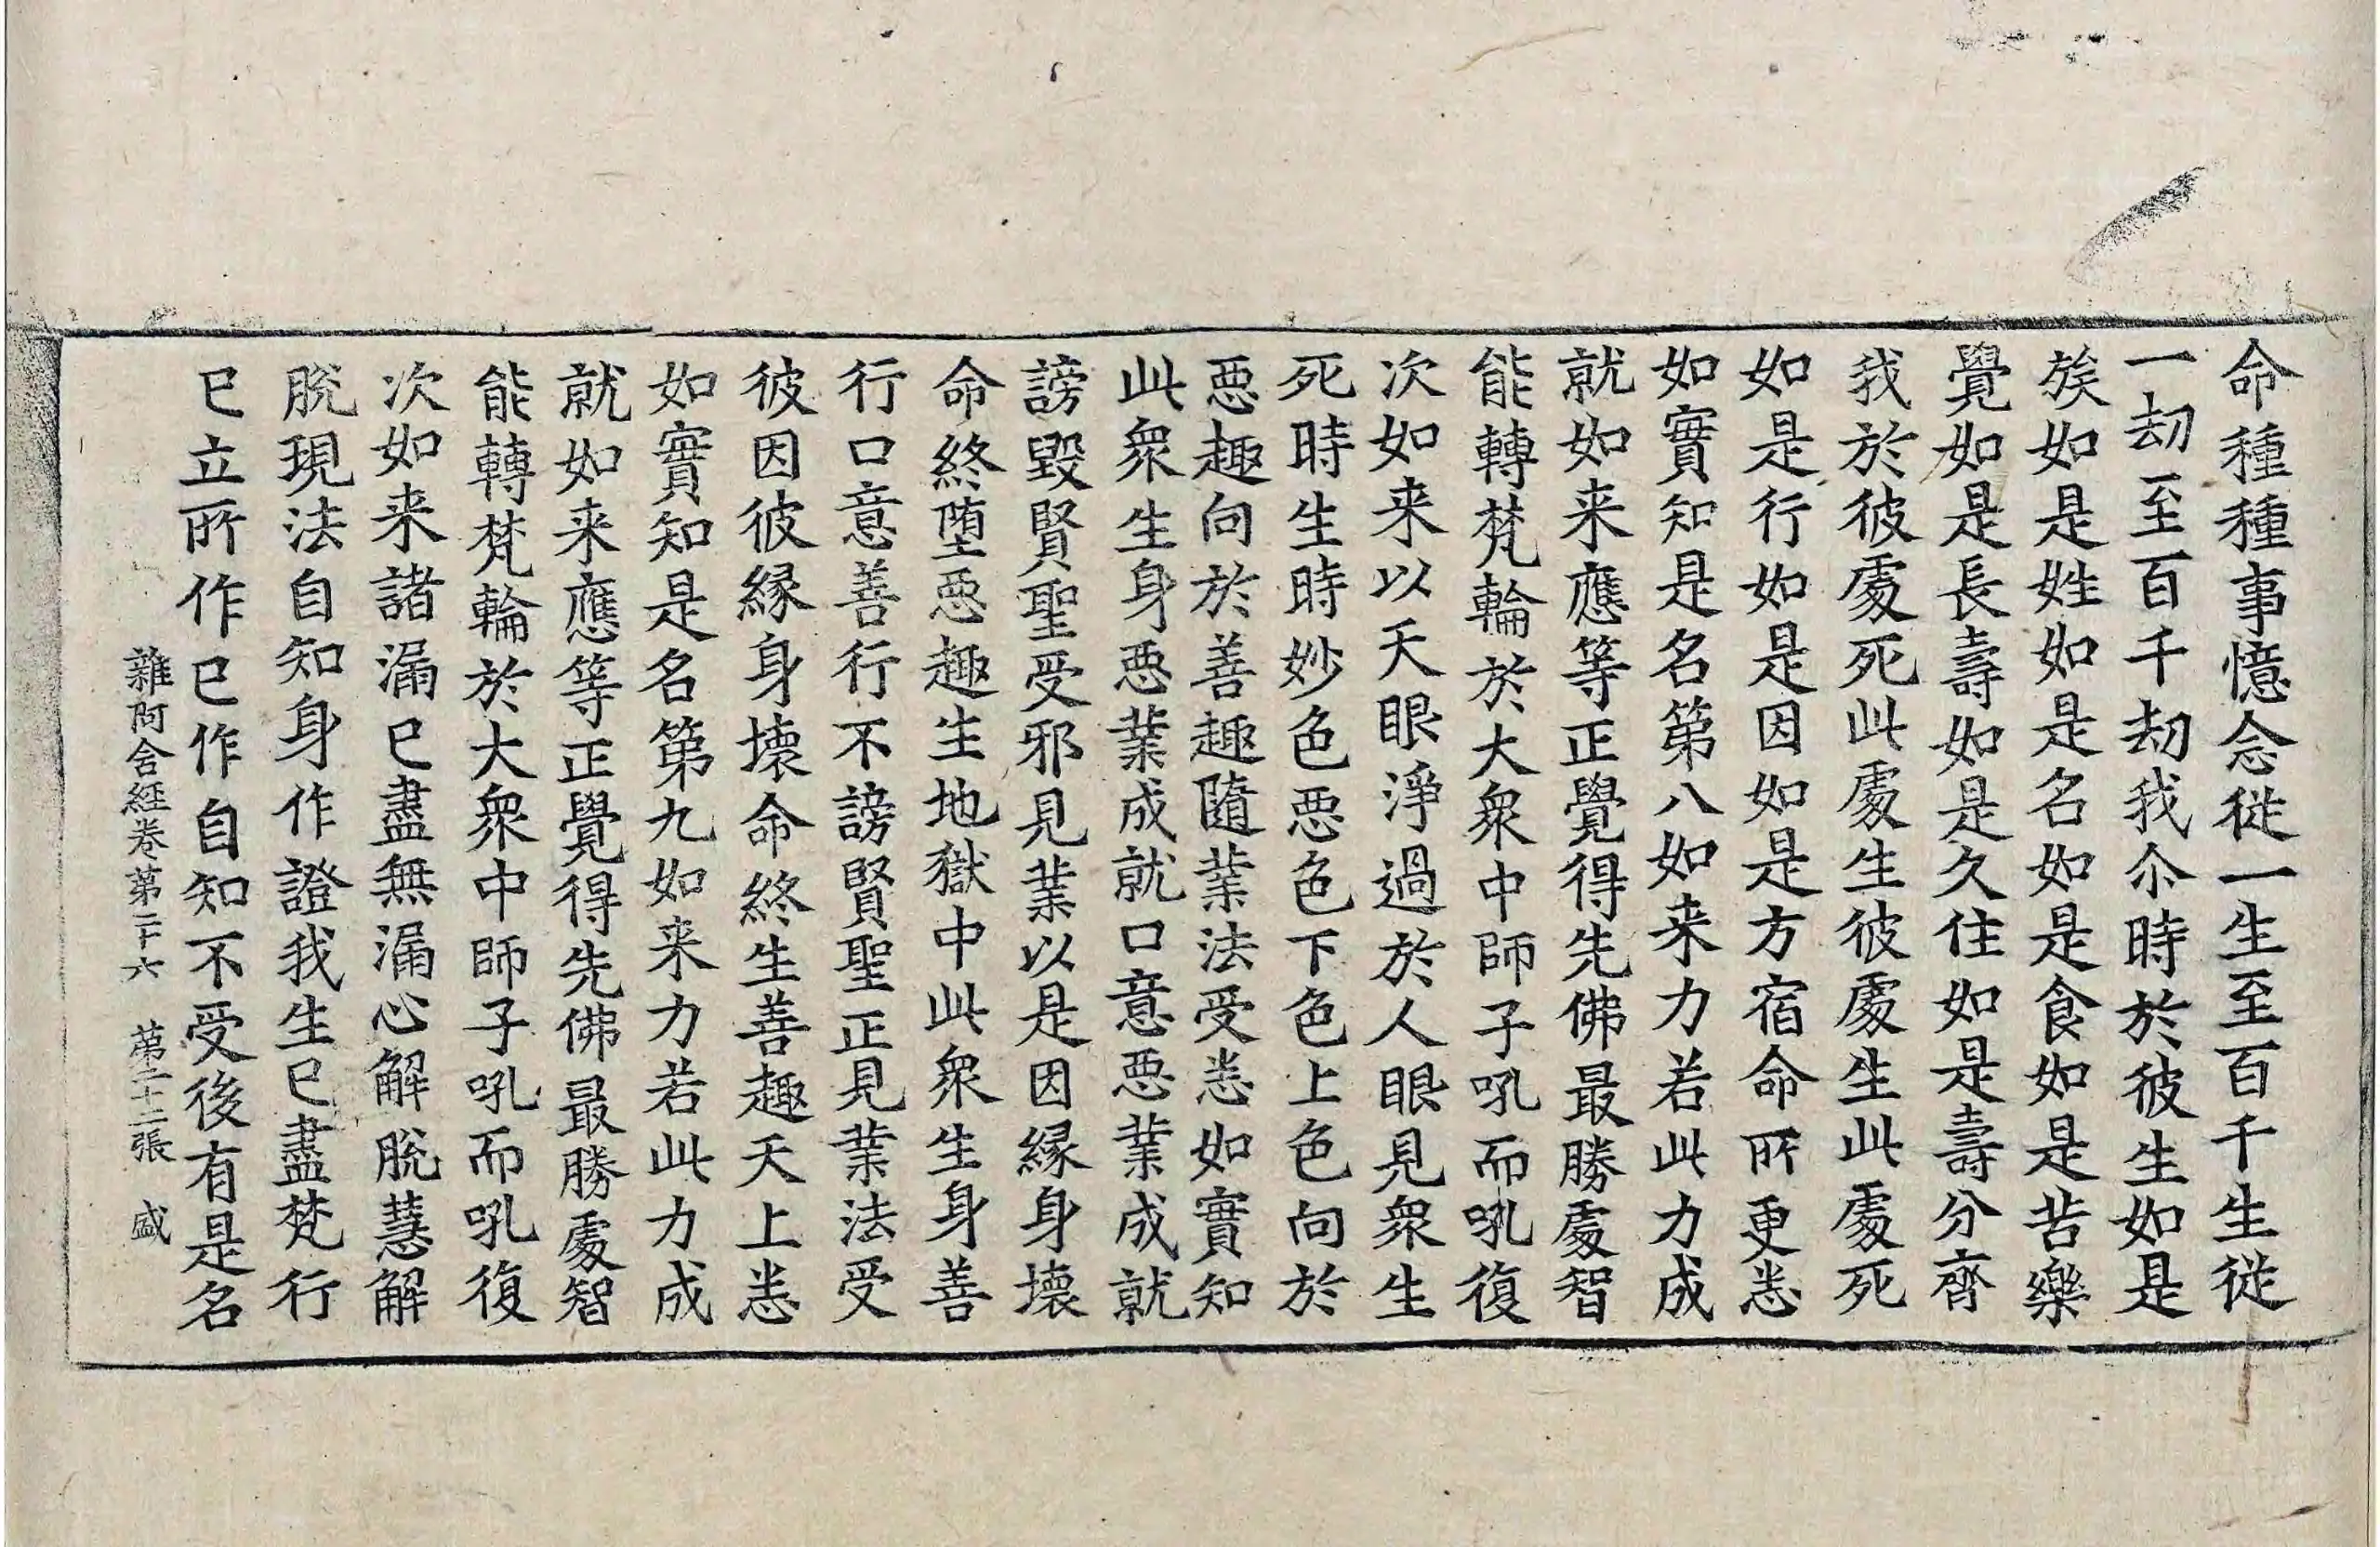 命種種事憶念從一生至百千生從
一劫至百千劫我尒時於彼生如是
族如是姓如是名如是食如是苦樂
覺如是長壽如是久住如是壽分齊
我於彼處死此處生彼處生此處死
如是行如是因如是方宿命所更悉
如實知是名第八如来力若此力成
就如来應等正覺得先佛最勝處智
能轉梵輪於大衆中師子吼而吼復
次如来以天眼淨過於人眼見衆生
死時生時妙色惡色下色上色向於
惡趣向於善趣隨業法受悉如實知
此衆生身惡業成就口意惡業成就
謗毀賢聖受邪見業以是因緣身壞
命終墮惡趣生地獄中此衆生身善
行口意善行不謗賢聖正見業法受
彼因彼緣身壞命終生善趣天上悉
如實知是名第九如来力若此力成
就如来應等正覺得先佛最勝處智
能轉梵輪於大衆中師子吼而吼復
次如来諸漏已盡無漏心解脫慧解
脫現法自知身作證我生已盡梵行
已立所作已作自知不受後有是名
雜阿含經卷第二十六 第二十二張 盛